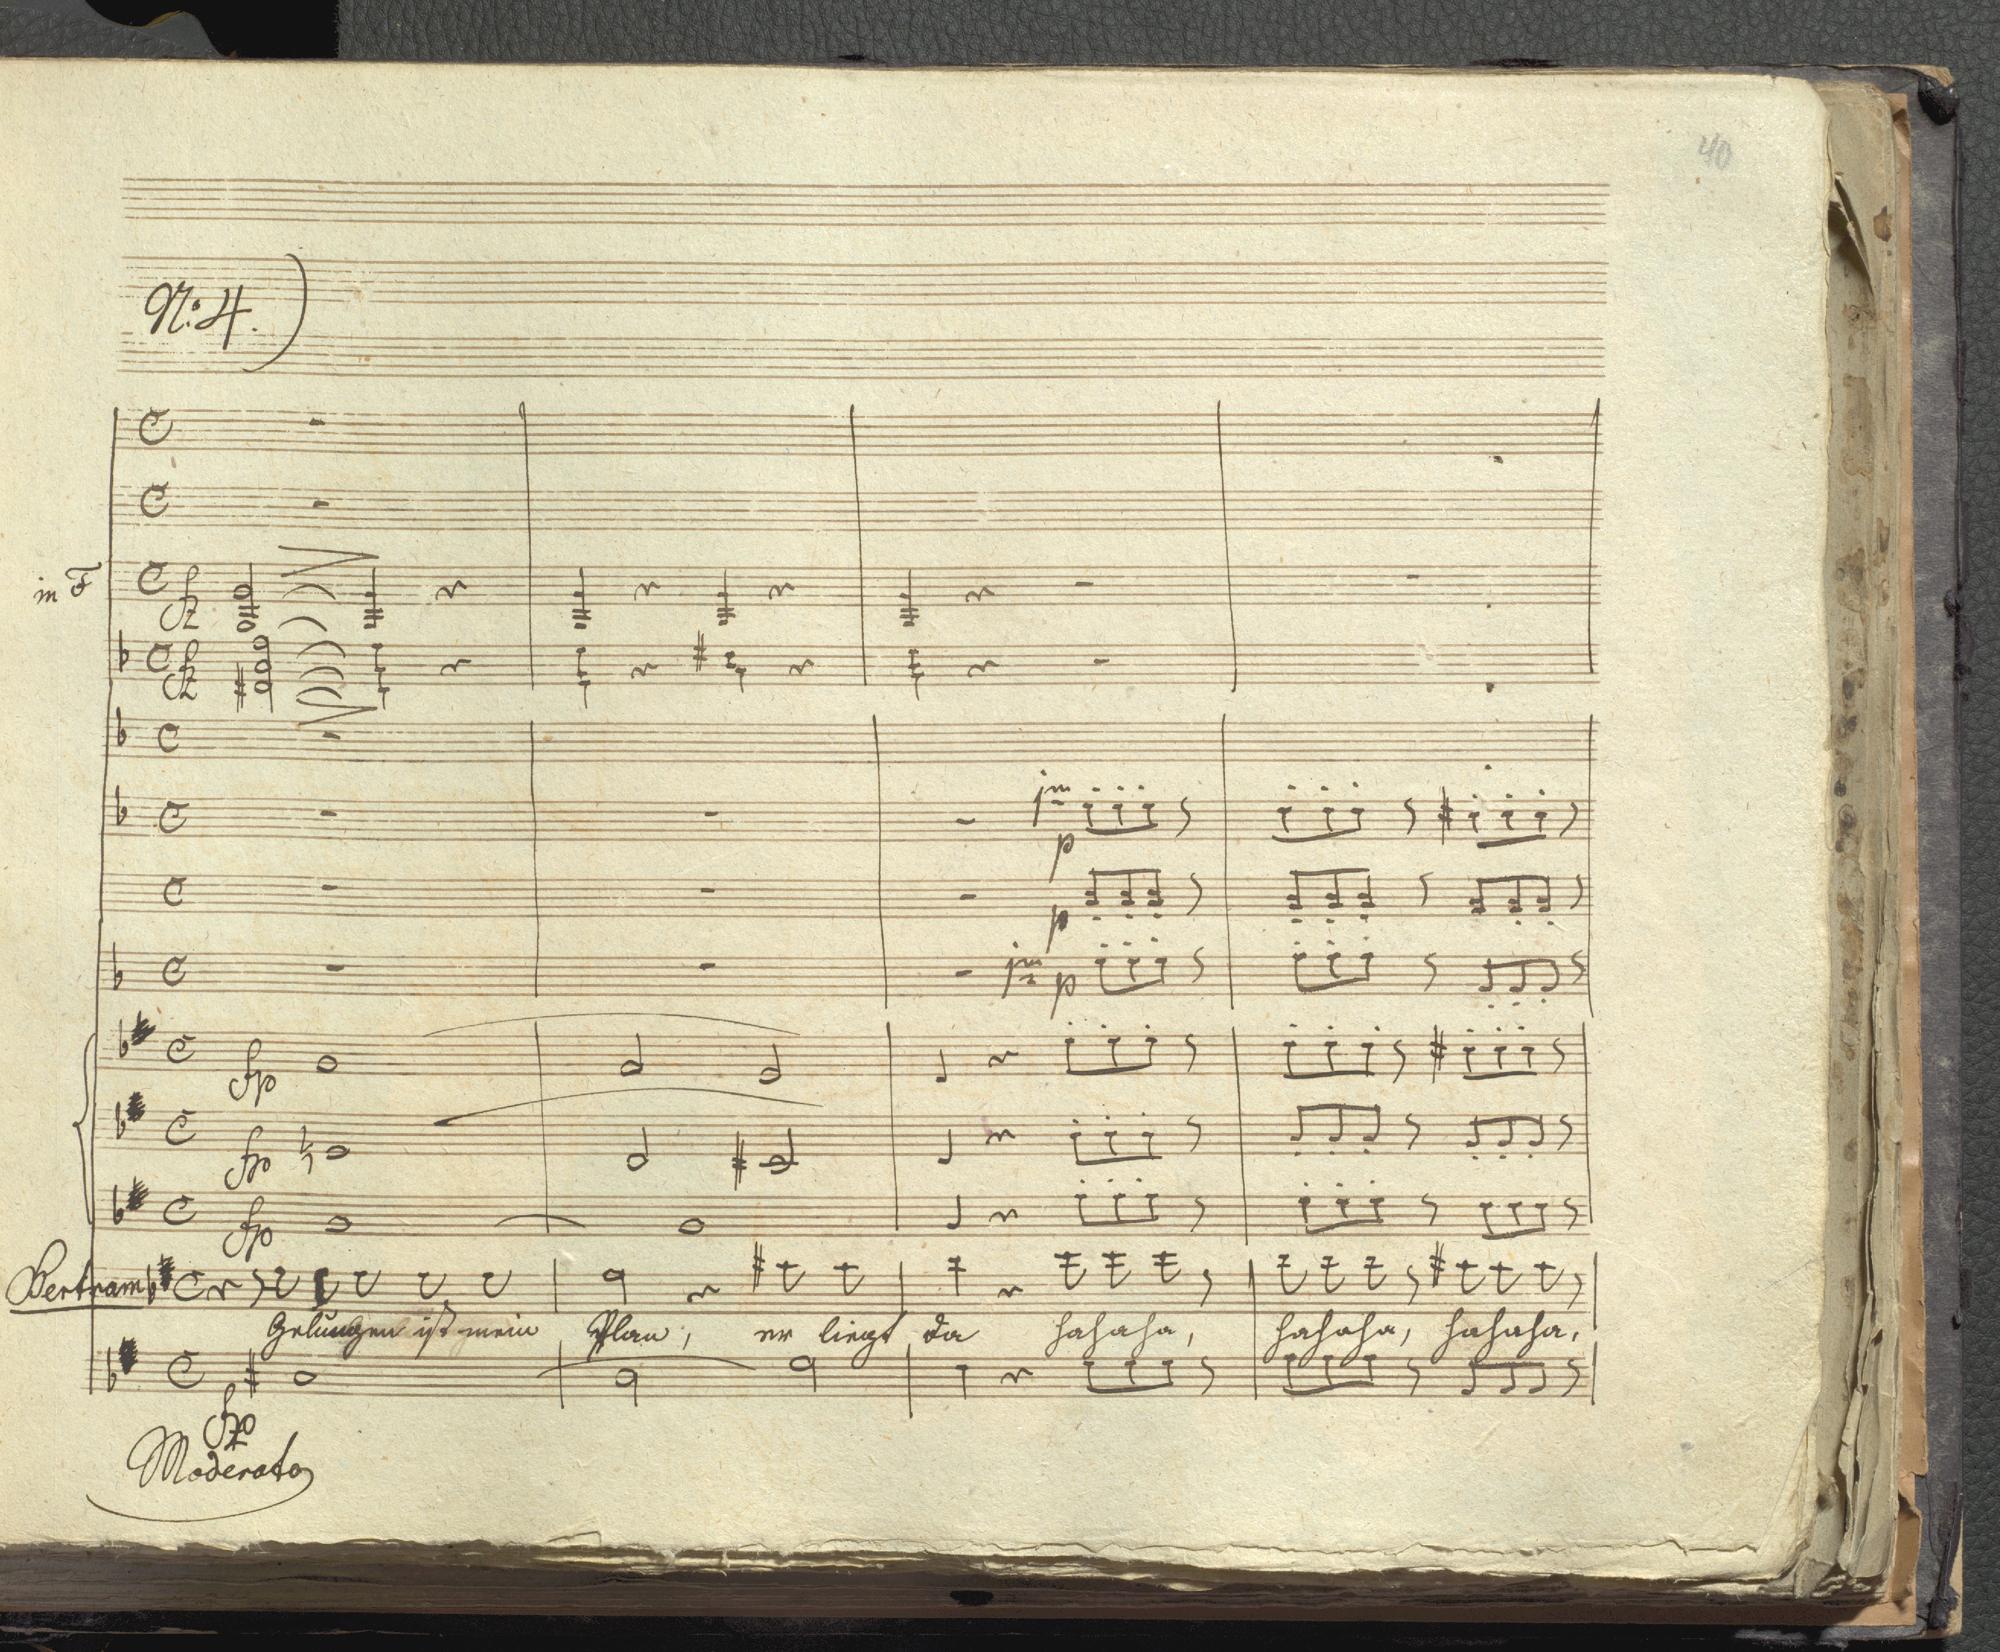 40
N: 4.
in F
fz
fz
1mo
p
p
1mo
p
fp
fp
fp
Bertram
Gelungen ist mein Plan, er liegt da hahaha, hahaha, hahaha,
fzp
Moderato